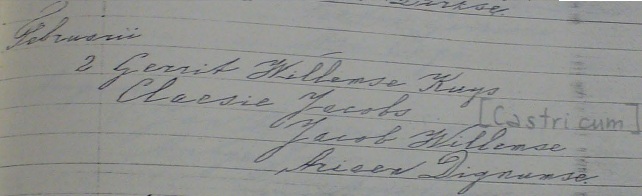 Dirkse.
Februarii
2 Gerrit Willemse Kuys
Claesie Jacobs
[Castricum]
Jacob Willemse
Ariaen Dignumse.